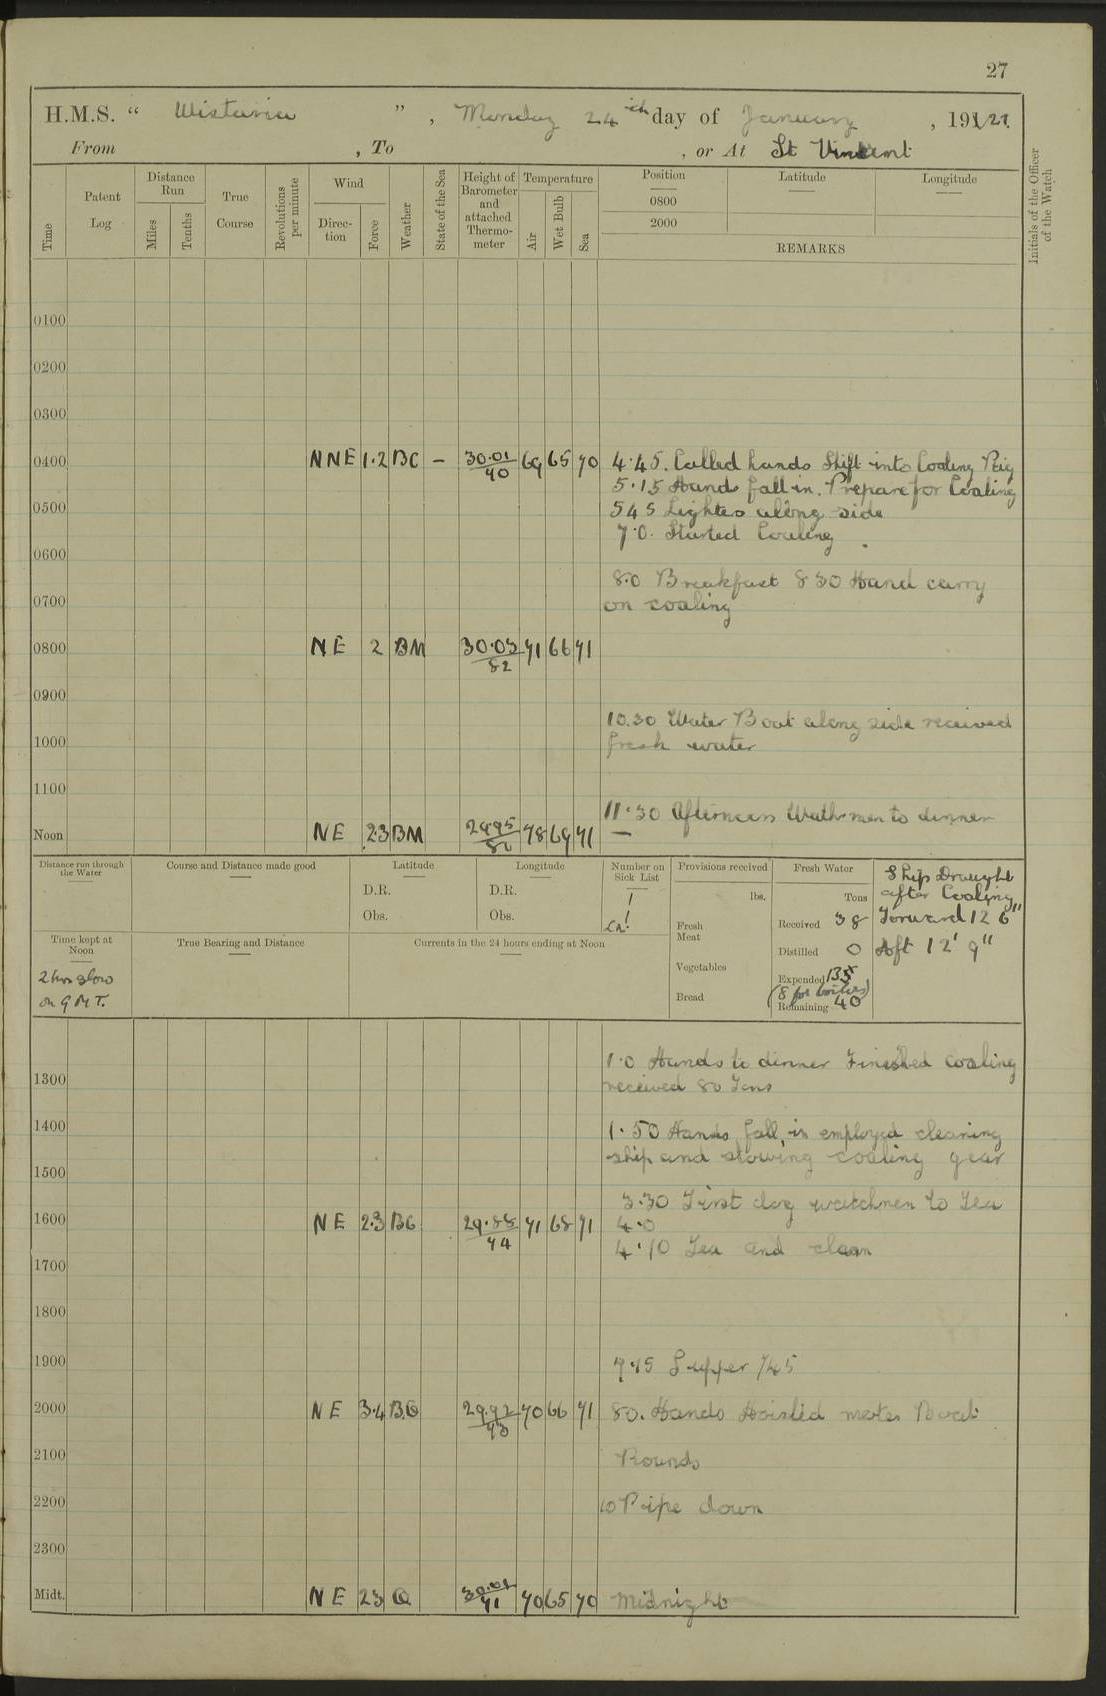 27
H.M.S. " Wistaria " , Monday 24th day of January , 1921.
From , To , or At St Vincent
Time
Patent Log
Distance Run
Miles
Tenths
True Course
Revolutions per minute
Wind
Direction
Force
Weather
State of the Sea
Height of Barometer and attached Thermometer
Temperature
Air
Wet Bulb
Sea
Position
0800
2000
Latitude
Longitude
REMARKS
Initials of the Officer of the Watch
0100
0200
0300
0400 NNE 1.2 BC – 30.01 70 69 65 70 4.45. Called hands Shift into Coaling Rig
5.15 Hands fall in. Prepare for Coaling
0500 545 Lighter along side
7.0. Started Coaling
0600
8.0 Breakfast 8 30 Hand carry
0700 on coaling
0800 NE 2 BM 30.03 82 71 66 71
0900
10.30 Water Boat along side received
1000 fresh water
1100
11.30 Afternoon Watchmen to dinner
Noon NE 2.3 BM 29.95 78 69 71 —
Distance run through the Water
Course and Distance made good
Latitude
D.R.
Obs.
Longitude
D.R.
Obs.
Number on Sick List
1
1
Provisions received
lbs.
Fresh Meat
Vegetables
Bread
Fresh Water
Tons
Received 38
Distilled 0
Expended 13
(8 for boilers)
Remaining 40
Ship Draught
after Coaling
Forward 12 6"
Aft 12' 9"
Time kept at Noon
2 hrs slow
on GMT.
True Bearing and Distance
Currents in the 24 hours ending at Noon
1.0 Hands to dinner Finished coaling
1300 received 80 Tons
1400 1.50 Hands fall in employed cleaning
ship and stowing coaling gear
1500
3.30 First dog watchmen to Tea
1600 NE 2.3 BC 29.88 74 71 68 71 4.0
4.10 Tea and clean
1700
1800
1900 7.15 Supper 745
2000 NE 3.4 29.92 73 70 66 71 80. Hands Hoisted motor Boat
2100 Rounds
2200 10 Pipe down
2300
Midt. NE 23 30.01 71 70 65 70 Midnight